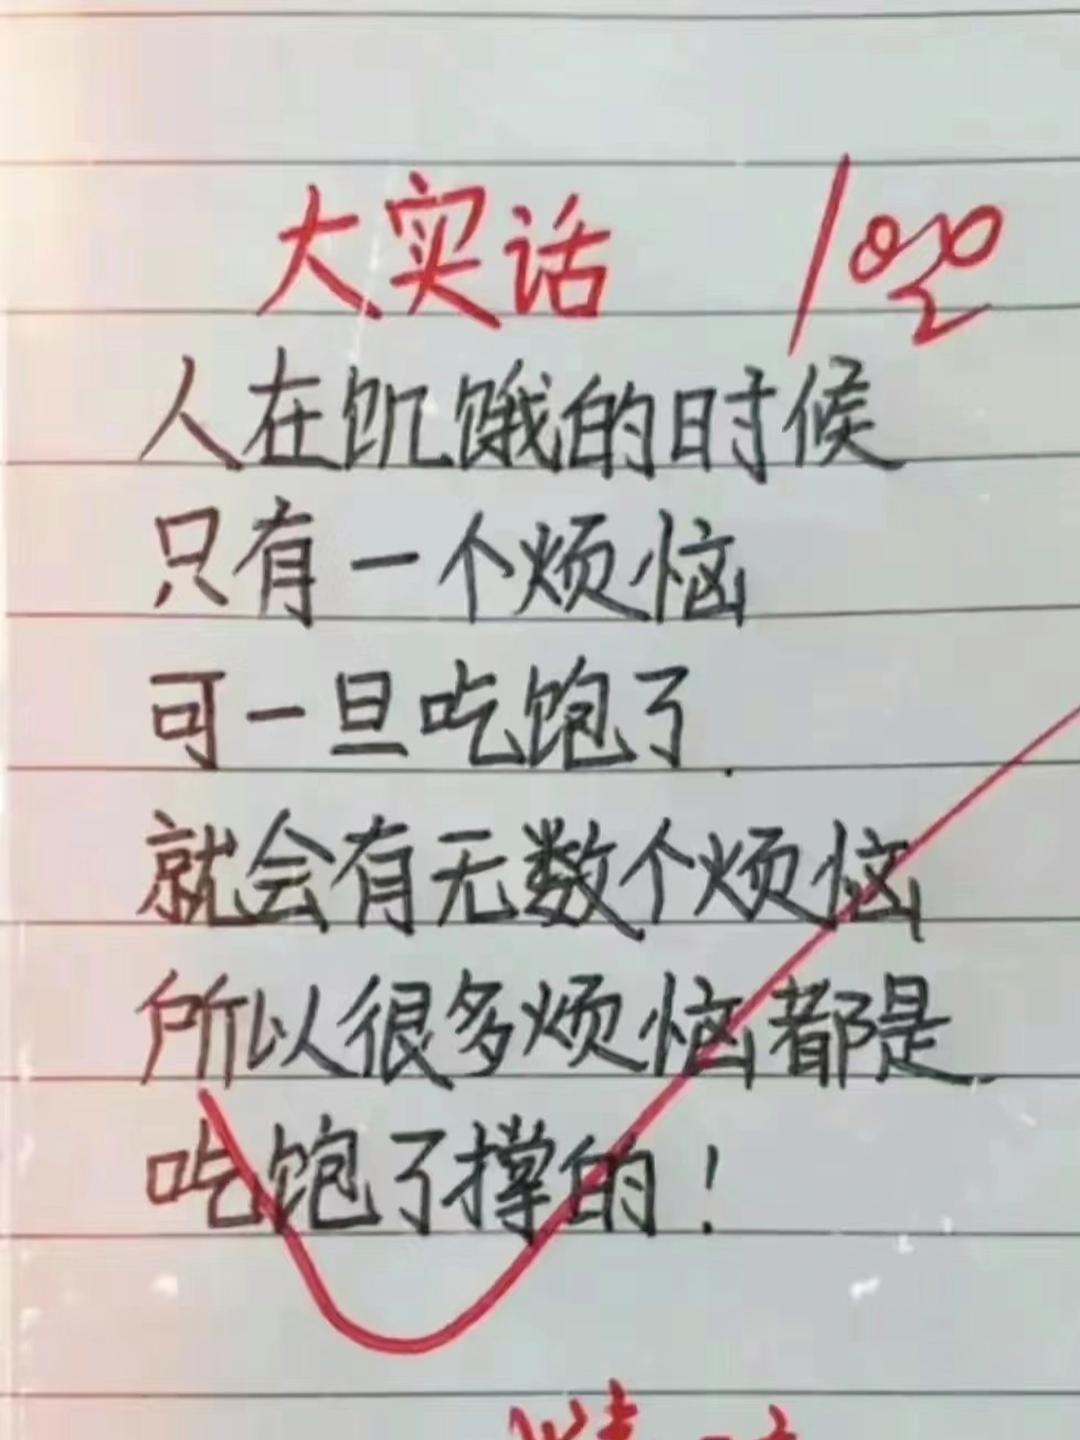 大实话 100
人在饥饿的时候
只有一个烦恼
可一旦吃饱了.
就会有无数个烦恼
所以很多烦恼都是
吃饱了撑的！